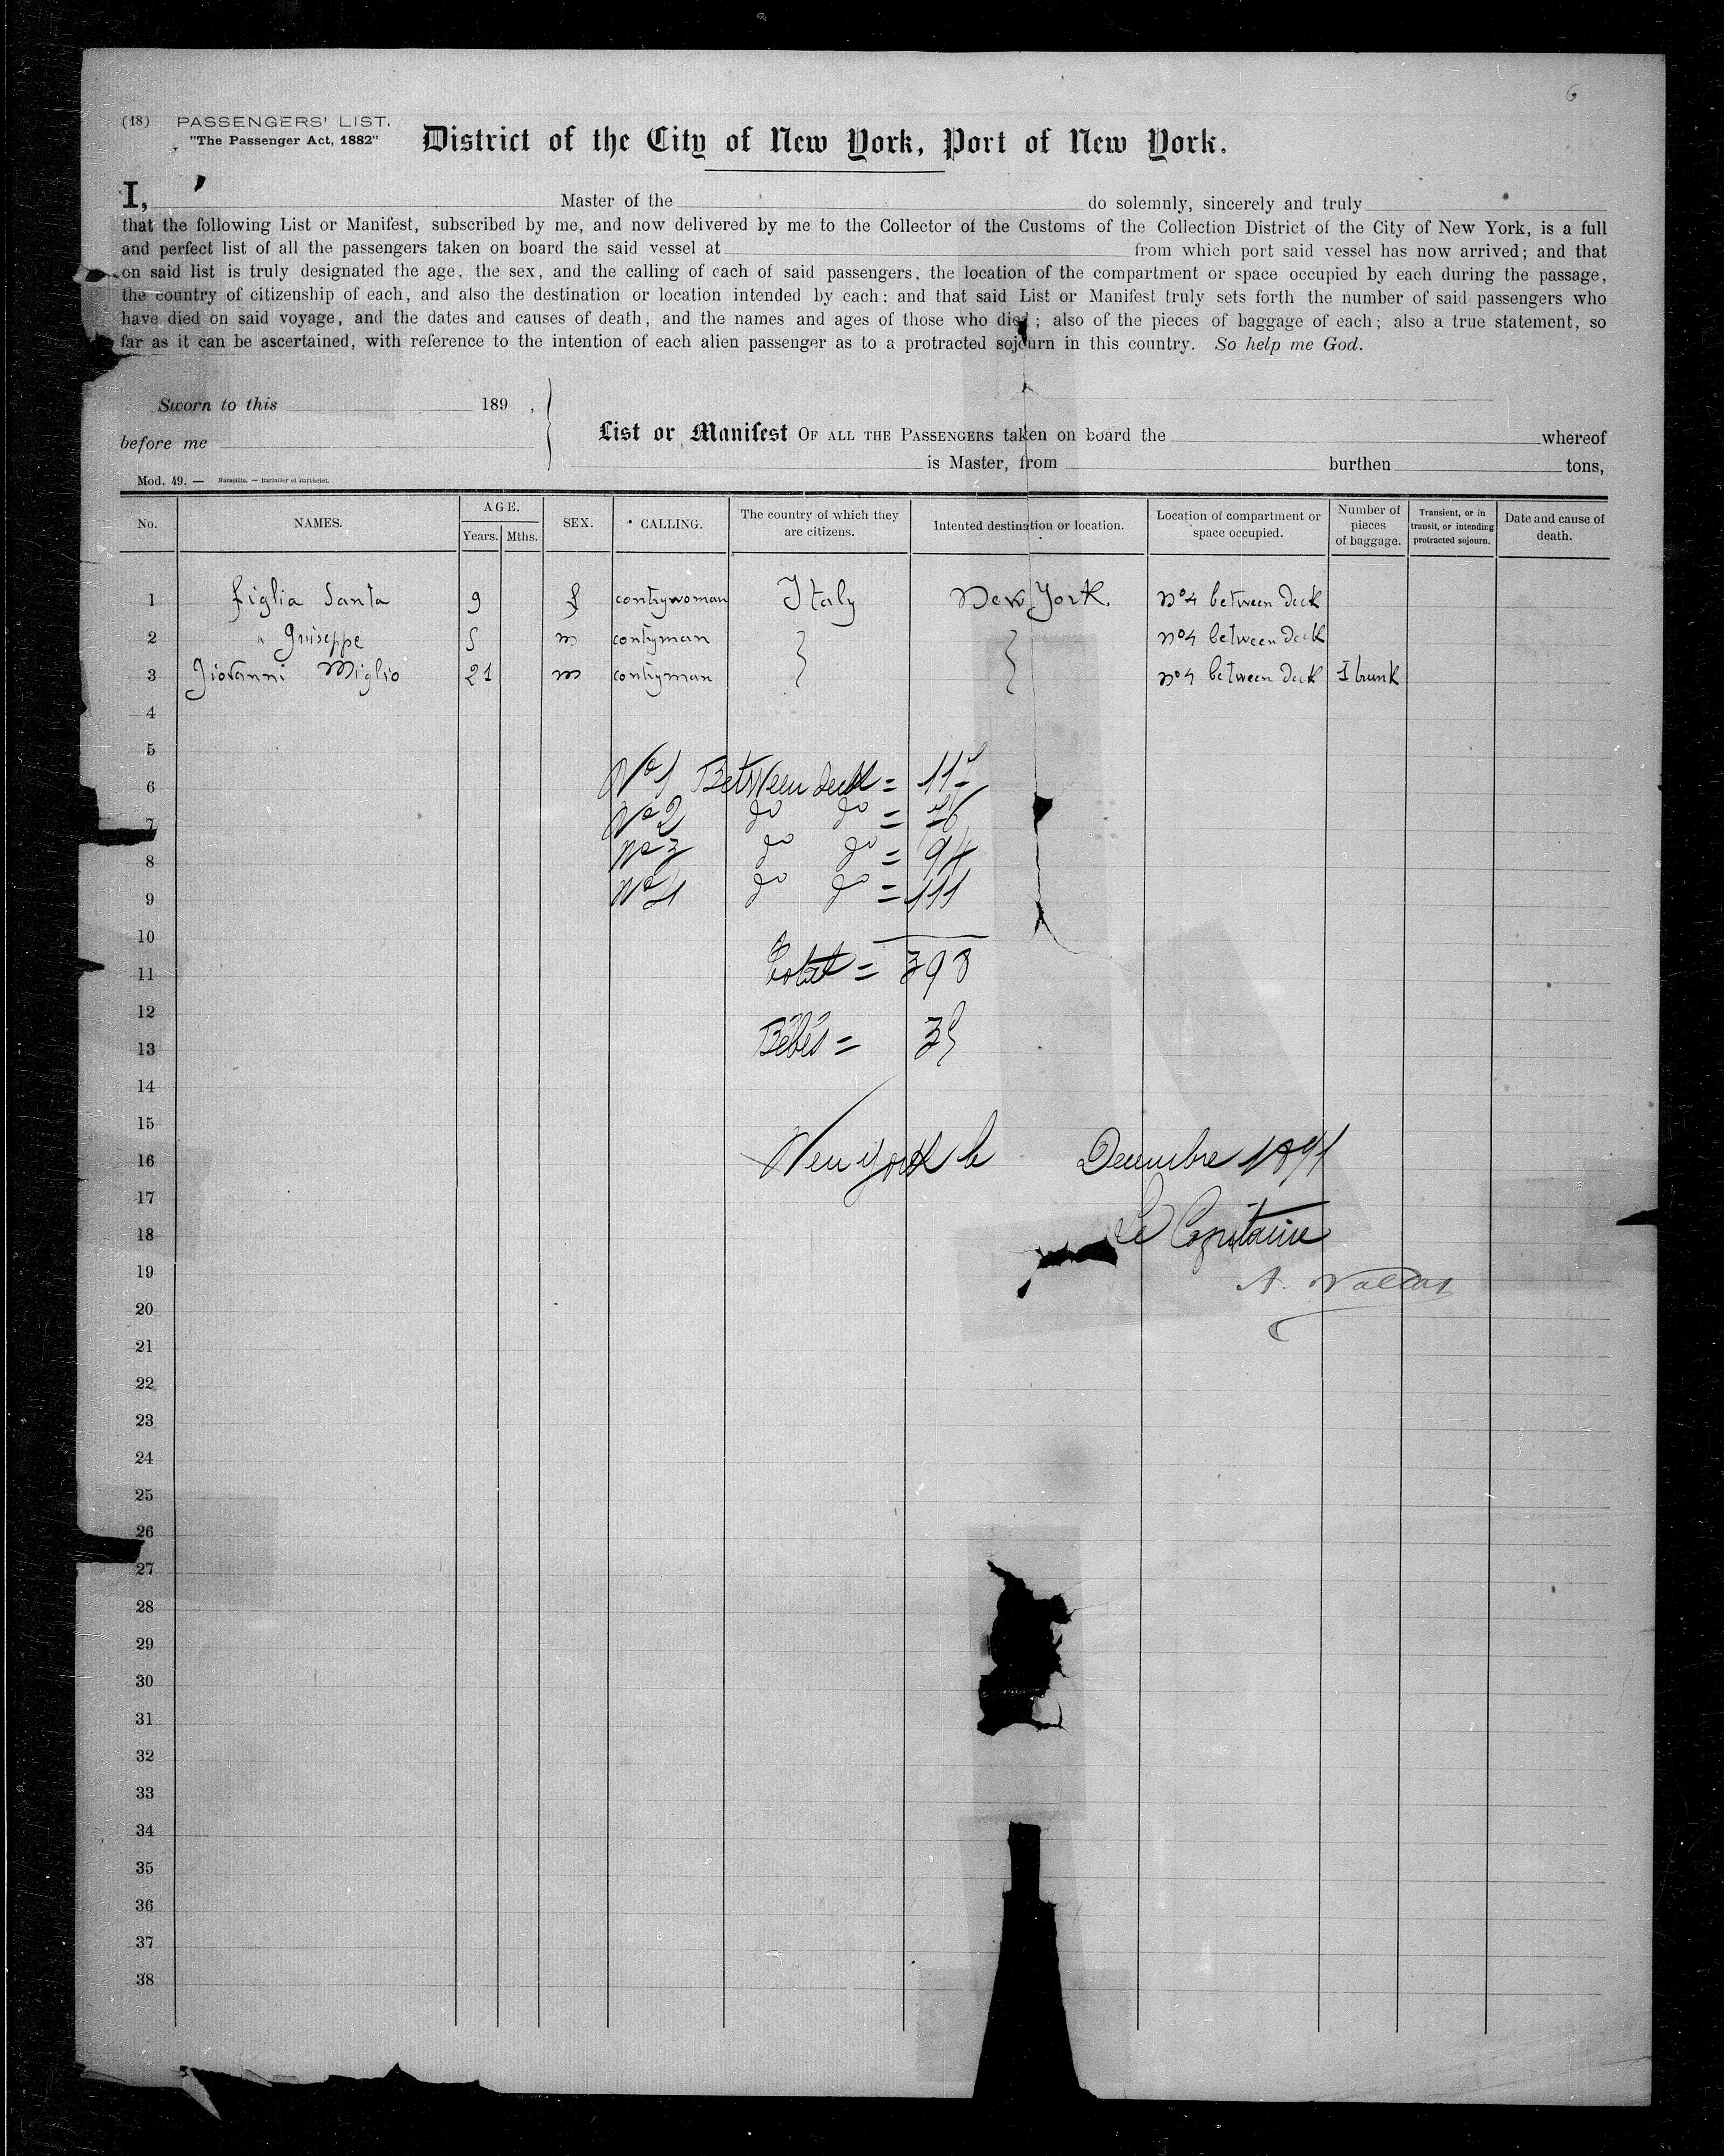 6
(18) PASSENGERS' LIST.
"The Passenger Act, 1882"
District of the City of New York, Port of New York.
I, Master of the do solemnly, sincerely and truly
that the following List or Manifest, subscribed by me, and now delivered by me to the Collector of the Customs of the Collection District of the City of New York, is a full
and perfect list of all the passengers taken on board the said vessel at from which port said vessel has now arrived; and that
on said list is truly designated the age, the sex, and the calling of each of said passengers, the location of the compartment or space occupied by each during the passage,
the country of citizenship of each, and also the destination or location intended by each: and that said List or Manifest truly sets forth the number of said passengers who
have died on said voyage, and the dates and causes of death, and the names and ages of those who died; also of the pieces of baggage of each; also a true statement, so
far as it can be ascertained, with reference to the intention of each alien passenger as to a protracted sojourn in this country. So help me God.
Sworn to this 189 ,
before me
List or Manifest OF ALL THE PASSENGERS taken on board the whereof
is Master, from burthen tons,
Mod. 49. — Marseille. — Barlatier et Barthelet.
No. NAMES. AGE. Years. Mths. SEX. CALLING. The country of which they are citizens. Intented destination or location. Location of compartment or space occupied. Number of pieces of baggage. Transient, or in transit, or intending protracted sojourn. Date and cause of death.
1 figlia Santa 9 f contrywoman Italy New York. no4 between deck
2 " Guiseppe 5 m contryman no4 between deck
3 Giovanni Miglio 21 m contryman no4 between deck 1 trunk
4
5
6 No1 Between deck =
7 No2 do do =
8 No3 do do = 94
9 No4 do do = 111
10
11 Total = 398
12
13 Bébés = 35
14
15
16 New York le Decembre 1891
17
18 Le Capitaine
19 A.
20
21
22
23
24
25
26
27
28
29
30
31
32
33
34
35
36
37
38